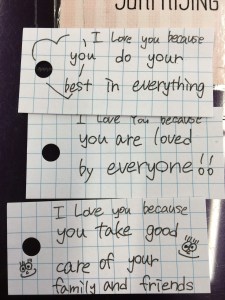 SURPRISING
I Love you because
you do your
best in everything
I Love You because
you are loved
by everyone!!
I Love you because
you take good
care of your
family and friends